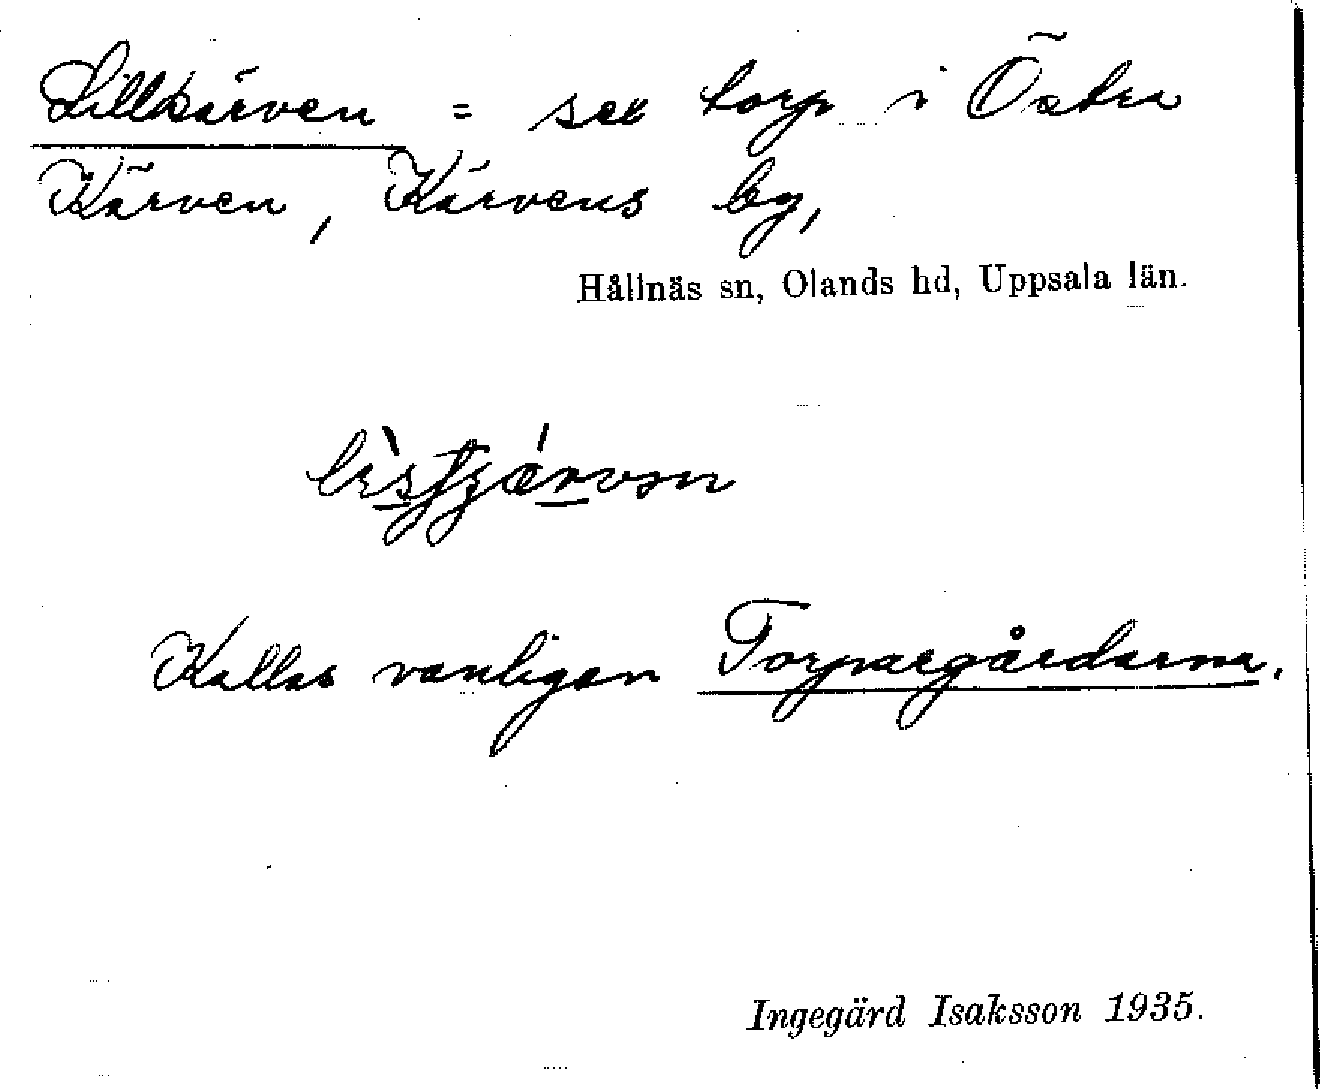 Lillkärven = sex torp i Östra
Kärven, Kärvens by,
Hållnäs sn, Olands hd, Uppsala län.
Kallas vanligen Torpargårdarna.
Ingegärd Isaksson 1935.